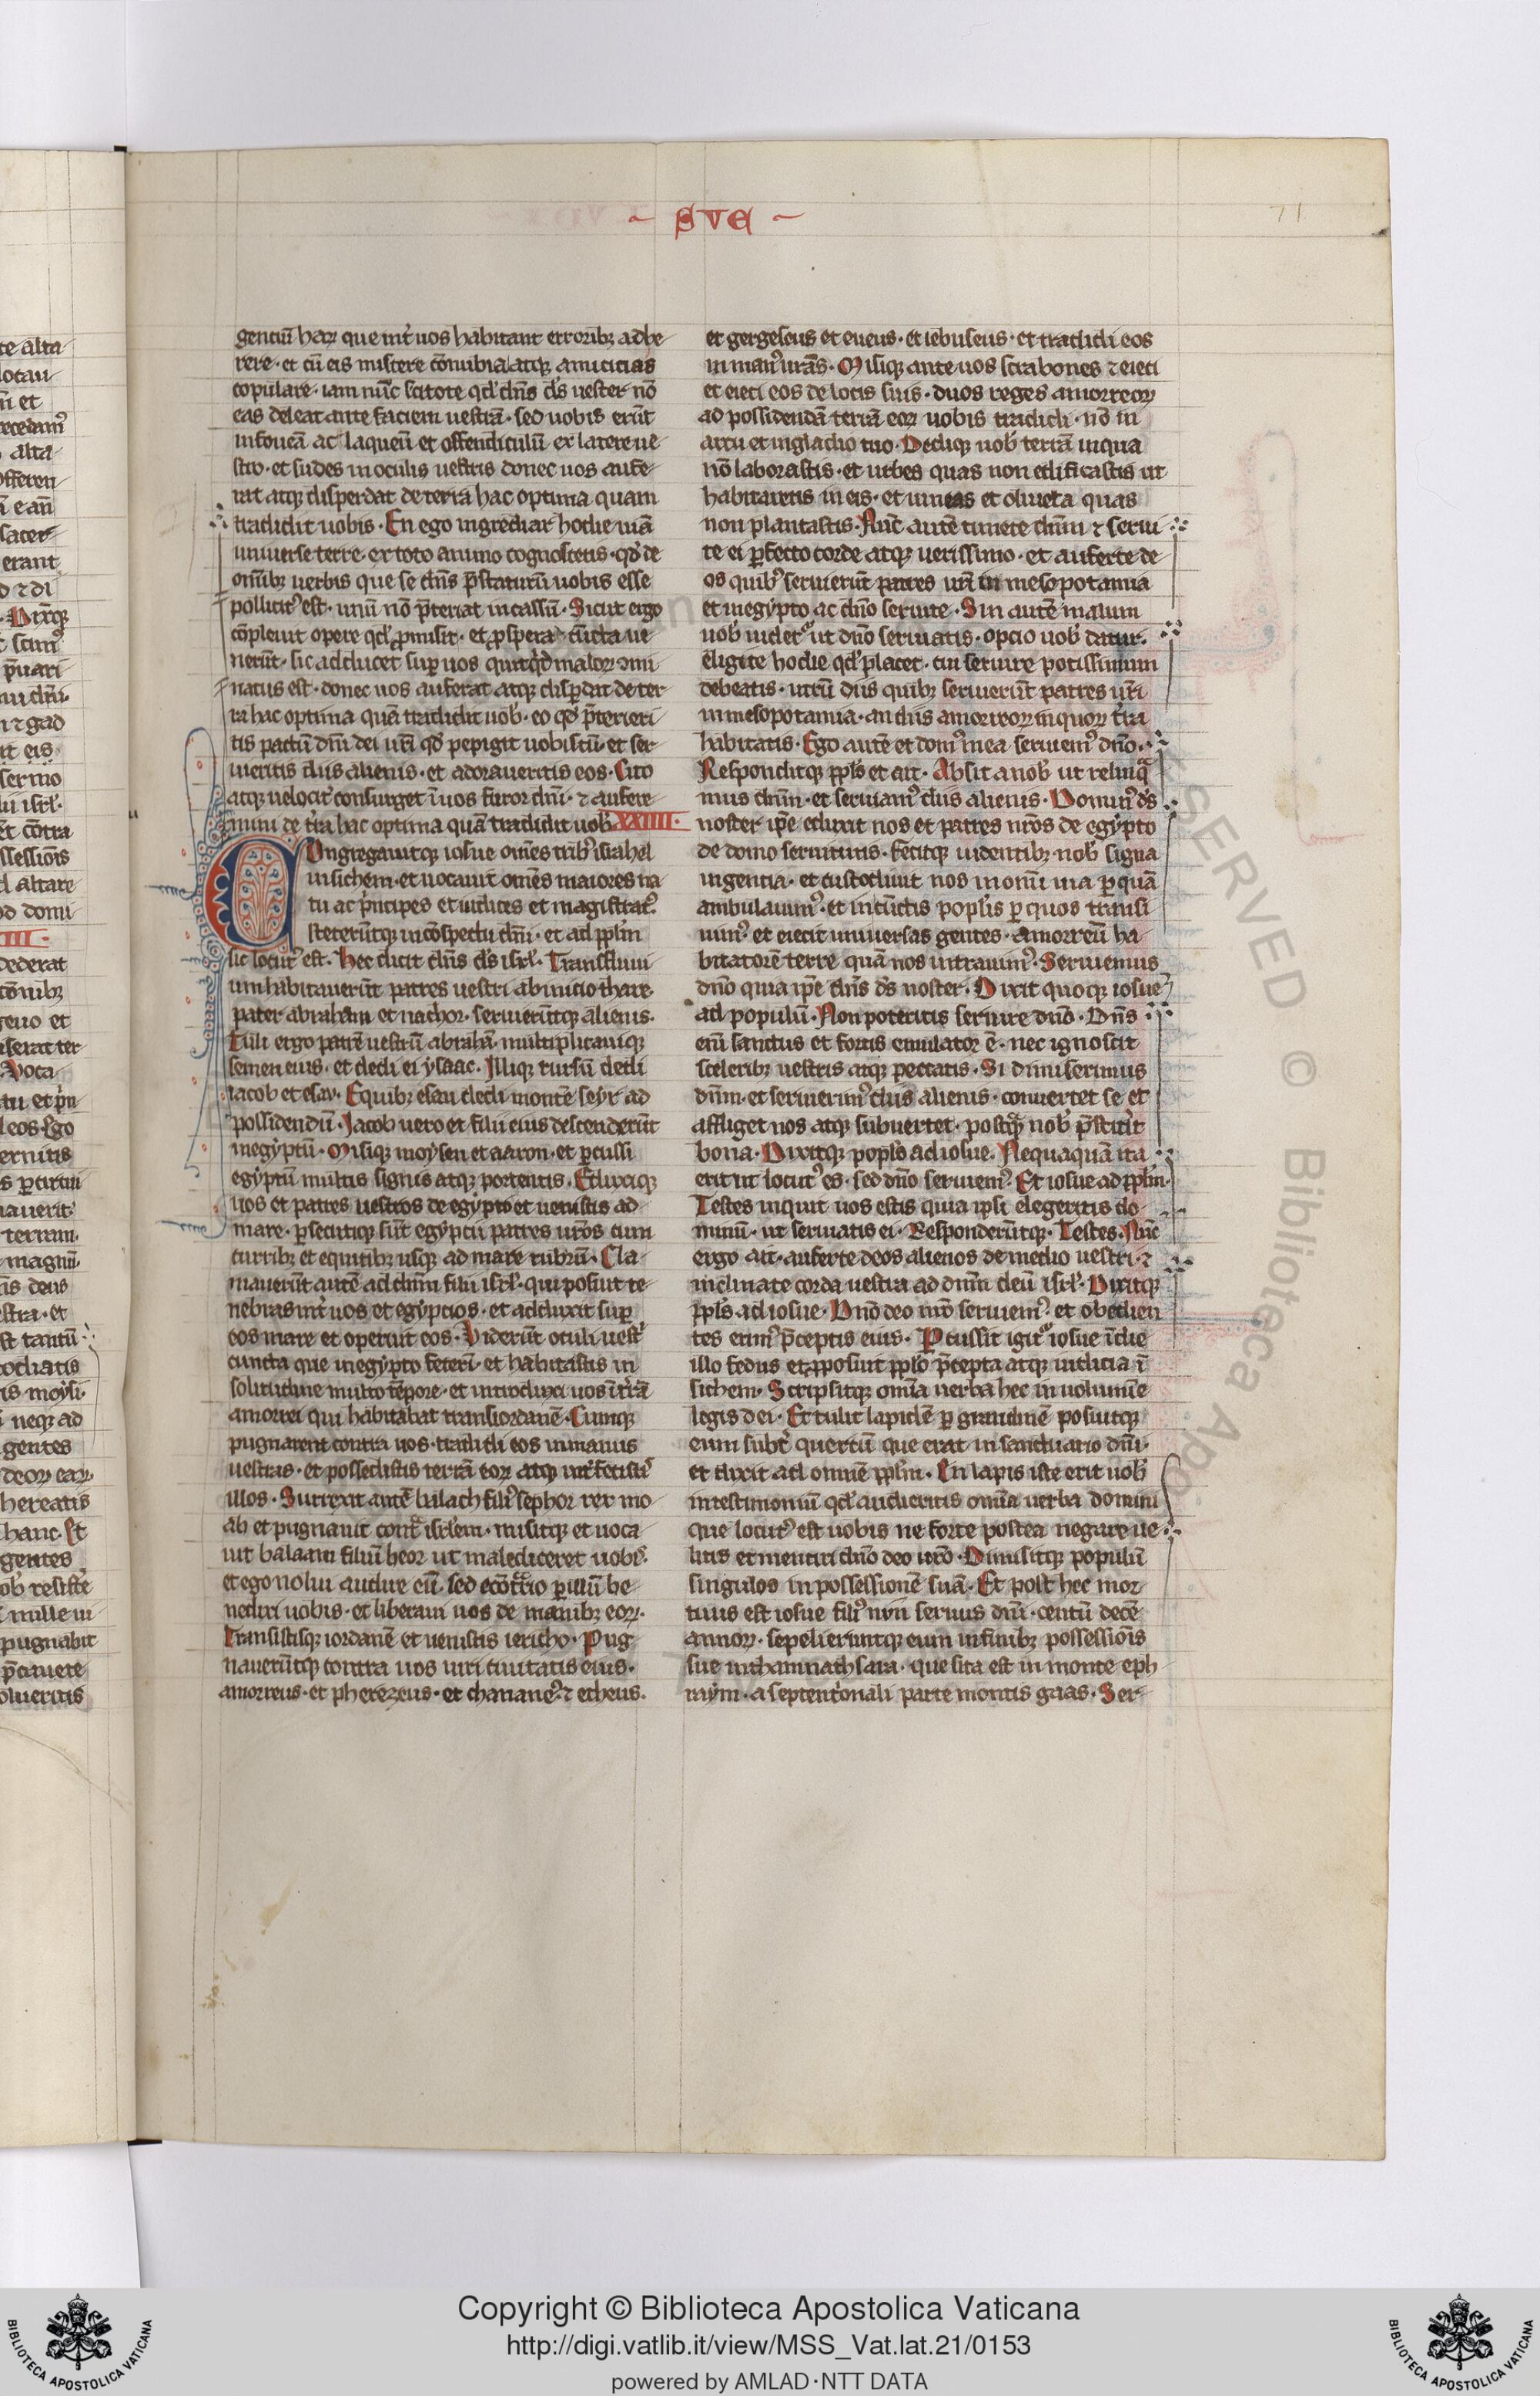 - SVE -
71
gentiū harꝝ que int̄ uos habitant erroribꝫ adhe
rere · et cū eis miscere cōnubia atqꝫ amicicias
copulare · iam nūc scitote qd̓ dn̄s ds̄ uester nō
eas deleat ante faciem uestrā · sed uobis erūt
in foueā ac laqueū et offendiculū ex latere ue
stro · et sudes in oculis uestris donec uos aufe
rat atqꝫ disperdat de terra hac optima quam
tradidit uobis · En ego ingrediar hodie uiā
uniuerse terre · ex toto animo cognoscetis · qd̓ de
om̄ibꝫ uerbis que se dn̄s p̄staturū uobis esse
pollicitꝰ est · unū nō p̄teriat in cassū · Sicut ergo
cōpleuit opere qd̓ ꝓmisit · et ꝓspera cūcta ue
nerūt · sic adducet suꝑ uos quicq̓d maloꝝ ɔmi
natus est · donec uos auferat atqꝫ disꝑdat de ter
ra hac optima quā tradidit uob̓ · eo qd̓ p̄terieri
tis pactū dn̄i dei ur̄i qd̓ pepigit uobiscū · et ser
uieritis diis alienis · et adoraueritis eos · Cito
atqꝫ uelocit̓ consurget ī uos furor dn̄i · ⁊ aufere
mini de t̓ra hac optima quā tradidit uob̓ XXIIII ·
COngregauitqꝫ iosue om̄es tribꝰ israhel
in sichem · et uocauit om̄es maiores na
tu ac p̄ncipes et iudices et magistratꝰ
steterūtqꝫ in cōspectu dn̄i · et ad ppl̄m
sic locutꝰ est · Hec dicit dn̄s ds̄ isrl̓ · Trans fluui
um habitauerūt patres uestri ab inicio thare
pater abraham et nachor · seruierūtqꝫ alienis ·
Tuli ergo patrē uestrū abrahā multiplicauiqꝫ
semen eius · et dedi ei ysaac · Illiqꝫ rursū dedi
iacob et esau · E quibꝫ esau dedi montē seyr ad
possidendū · Jacob uero et filii eius descenderūt
in egyptū · Misiqꝫ moysen et aaron · et ꝑcussi
egyptū multis signis atqꝫ portentis · Eduxiqꝫ
uos et patres uestros de egypto et uenistis ad
mare · ꝑsecutiqꝫ sūt egyptii patres ur̄os cum
curribꝫ et equitibꝫ usqꝫ ad mare rubrū · Cla
mauerūt autē ad dn̄m filii isrl̓ · qui posuit te
nebras int̓ uos et egyptios · et adduxit suꝑ
eos mare et operuit eos · Viderūt oculi uest̓
cuncta que in egypto fecerī · et habitastis in
solitudine multo tēpore · et introduxi uos ī t̓rā
amorrei qui habitabat trans iordanē · Cumqꝫ
pugnarent contra uos · tradidi eos in manus
uestras · et possedistis terrā eoꝝ atqꝫ int̓fecistis
illos · Surrexit autē balach filiꝰ sephor rex mo
ab et pugnauit cont̓ isrl̓em · misitqꝫ et uoca
uit balaam filiū beor ut malediceret uobis ·
et ego nolui audire eū · sed econt̓rio ꝑ illū be
nedixi uobis · et liberaui uos de manibꝫ eoꝝ ·
Transistisqꝫ iordanē et uenistis iericho · Pug
nauerūtqꝫ contra uos uiri ciuitatis eius ·
amorreus · et pherezeus · et chananeꝰ · ⁊ etheus ·
et gergeseus et eueus · et iebuseus · et tradidi eos
in manꝰ ur̄as · Misiqꝫ ante uos scrabones ⁊ eieci
et eieci eos de locis suis · duos reges amorreoꝝ
ad possidendā terrā eoꝝ uobis tradidi · nō in
arcu et in gladio tuo · Dediqꝫ uob̓ terrā in qua
nō laborastis · et urbes quas non edificastis ut
habitaretis in eis · et uineas et oliueta quas
non plantastis · Nūc autē timete dn̄m ⁊ serui
te ei ꝑfecto corde atqꝫ uerissimo · et auferte de
os quibꝰ seruierūt patres ur̄i in mesopotamia
et in egypto ac dn̄o seruite · Sin autē malum
uob̓ uidet᷑ ut dn̄o seruiatis · opcio uob̓ datur ·
eligite hodie qd̓ placet · cui seruire potissimum
debeatis · utrū diis quibꝫ seruierūt patres ur̄i
in mesopotamia · an diis amorreoꝝ in quoꝝ t̓ra
habitatis · Ego autē et domꝰ mea seruiemꝰ dn̄o ·
Responditqꝫ ppl̄s et ait · Absit a nob̓ ut relinq̓
mus dn̄m · et seruiamꝰ diis alienis · Dominꝰ ds̄
noster ip̄e eduxit nos et patres nr̄os de egypto
de domo seruitutis · fecitqꝫ uidentibꝫ nob̓ signa
ingentia · et custodiuit nos in om̄i uia ꝑ quā
ambulauimꝰ · et in cūctis popl̓is ꝑ quos transi
uimꝰ et eiecit uniuersas gentes · amorreū ha
bitatorē terre quā nos intrauimꝰ · Seruiemus
dn̄o quia ip̄e dn̄s ds̄ noster · Dixit quoqꝫ iosue
ad populū · Non poteritis seruire dn̄o · Dn̄s
eni sanctus et fortis emulator ē · nec ignoscit
sceleribꝫ uestris atqꝫ peccatis · Si dimiserimus
dn̄m · et seruierimꝰ diis alienis · conuertet se et
affliget nos atqꝫ subuertet · postq̄ nob̓ p̄stitit̓
bona · Dixitqꝫ popl̓s ad iosue · Nequaquā ita
erit ut locutꝰ es · sed dn̄o seruiemꝰ · Et iosue ad ppl̄m ·
Testes inquit uos estis quia ipsi elegeritis do
minū · ut seruiatis ei · Responderūtqꝫ · Testes · Nūc
ergo ait · auferte deos alienos de medio uestri · ⁊
inclinate corda uestra ad dn̄m deū isrl̓ · Dixitqꝫ
ppl̄s ad iosue · Dn̄o deo nr̄o seruiemꝰ · et obedien
tes erimꝰ p̄ceptis eius · Pcussit igit᷑ iosue ī die
illo fedus et ꝓposuit ppl̄o p̄cepta atqꝫ iudicia ī
sichem · Scripsitqꝫ om̄ia uerba hec in uolumīe
legis dei · Et tulit lapidē ꝑ grandinē posuitqꝫ
eum subt̓ quercū que erat in sanctuario dn̄i ·
et dixit ad omnē ppl̄m · En lapis iste erit uob̓
in testimoniū qd̓ audieritis om̄ia uerba domini
que locutꝰ est uobis ne forte postea negare ue
litis et mentiri dn̄o deo ur̄o · Dimisitqꝫ populū
singulos in possessionē suā · Et post hec mor
tuus est iosue filiꝰ nun seruus dn̄i · centū decē
annoꝝ · sepelieruntqꝫ eum in finibꝫ possessiōis
sue in thamnath sara · que sita est in monte eph
raym · a septentrionali parte montis gaas · Ser
RESERVED © Biblioteca Apo
Copyright © Biblioteca Apostolica Vaticana
http://digi.vatlib.it/view/MSS_Vat.lat.21/0153
powered by AMLAD·NTT DATA
BIBLIOTECA APOSTOLICA VATICANA
BIBLIOTECA APOSTOLICA VATICANA